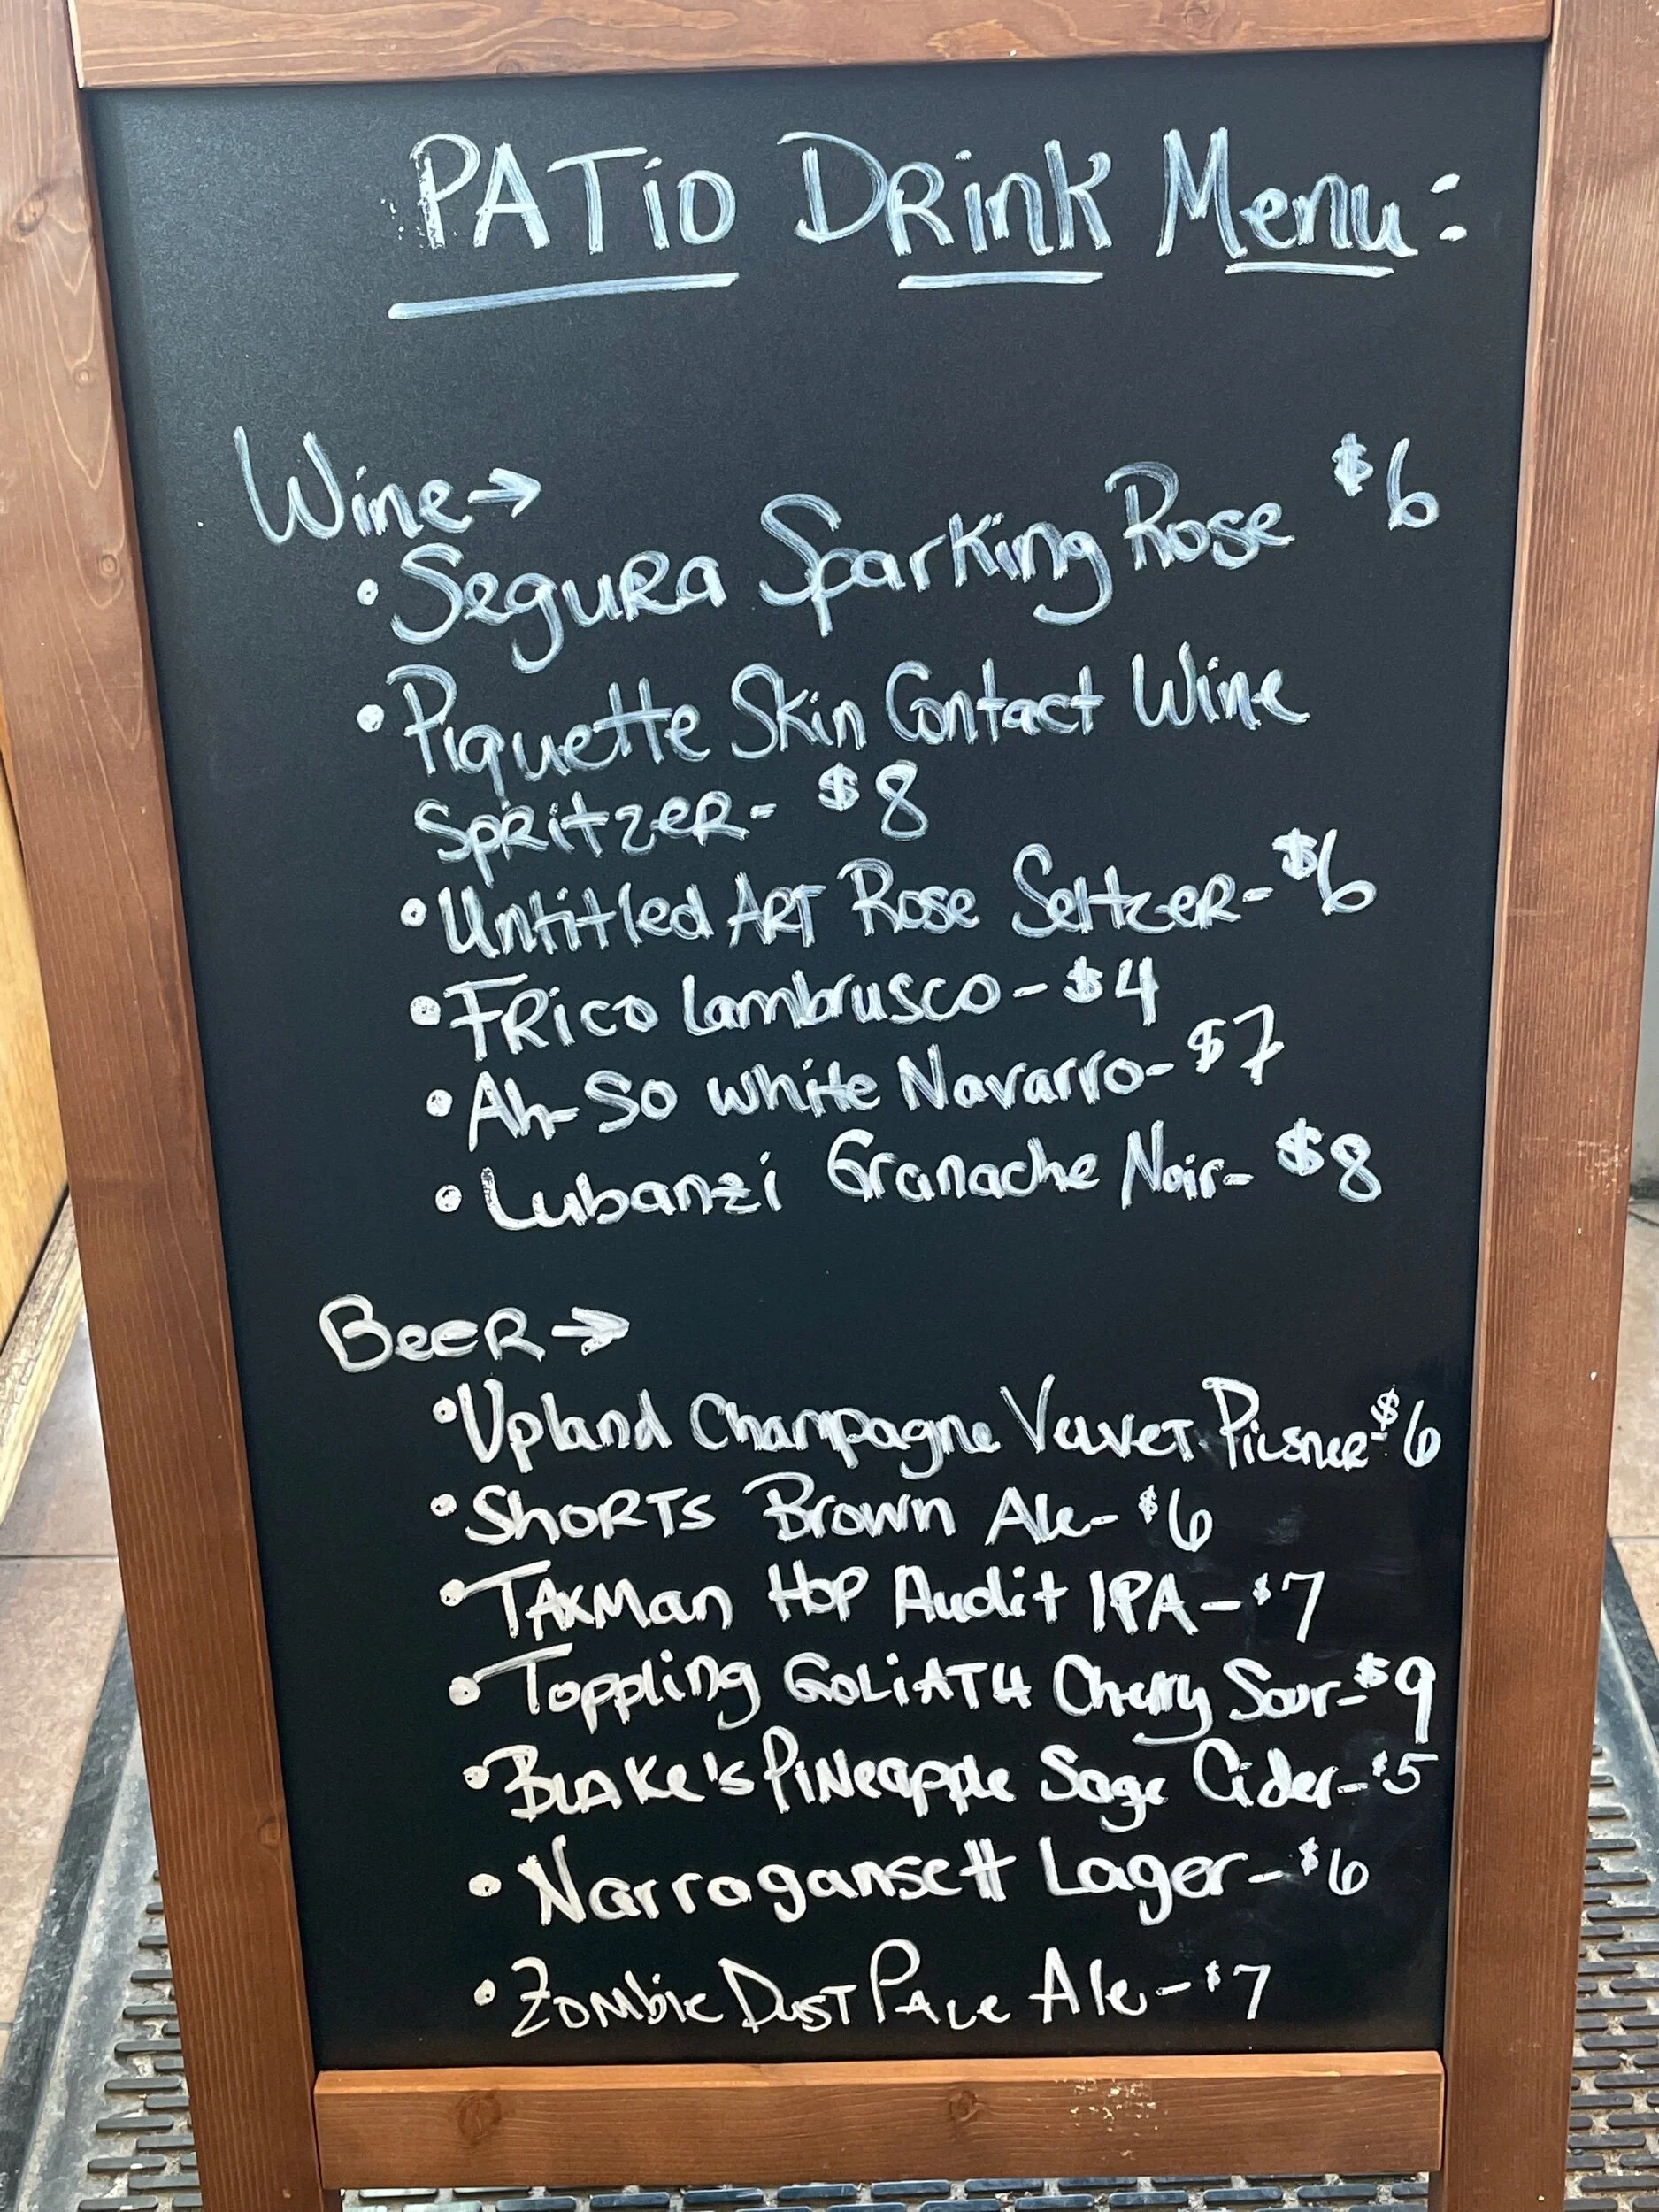 PATio DRink Menu:
Wine→
• SeguRa Sparking Rose $6
• Piquette Skin Contact Wine
SpRitzeR- $8
• Untitled ART Rose SeltzeR- $6
• FRico Lambrusco - $4
• Ah-So white Navarro- $7
• Lubanzi Granache Noir- $8
BeeR →
• Upland Champagne VelveT Pilsner- $6
• ShoRTs Brown Ale- $6
• TAxMan Hop Audit IPA - $7
• Toppling GOLiATH Cherry Sour- $9
• BLAKe's PiNeapple Sage Cider- $5
• Narragansett Lager- $6
• ZoMbie DusT PALe Ale - $7